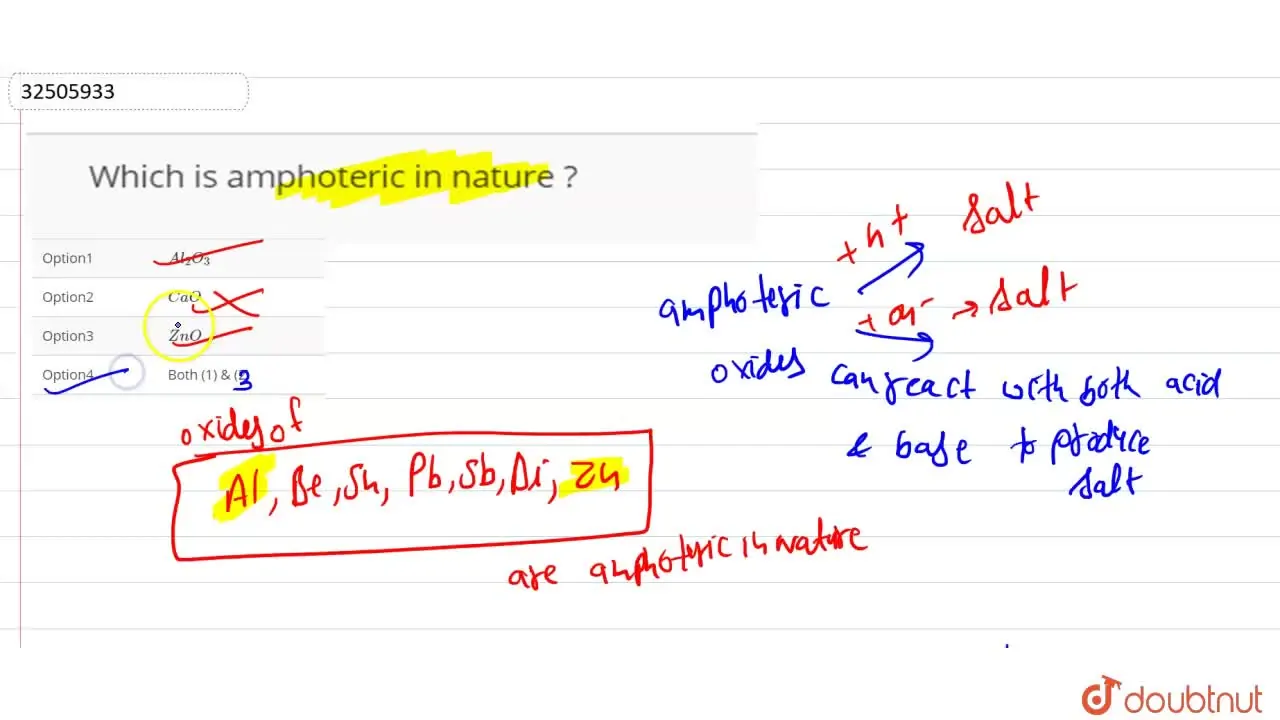 32505933
Which is amphoteric in nature ?
Option1 Al₂O₃
Option2 CaO
Option3 ZnO
Option4 Both (1) & (3
oxides of
Al, Be, Sn, Pb, Sb, Bi, Zn
are amphoteric in nature
amphoteric
oxides
+ H+ Salt
+ OH- → Salt
can react with both acid
& base to produce
salt
doubtnut